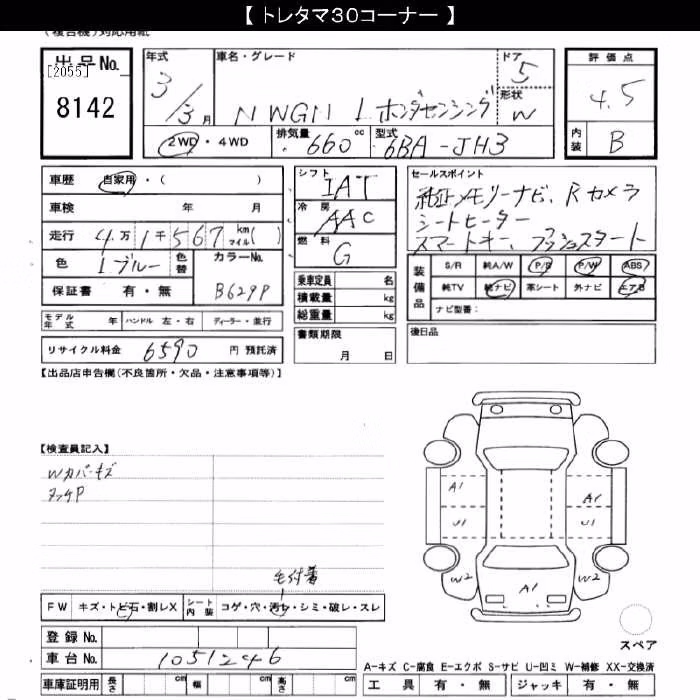 【 トレタマ30コーナー 】
(複合機)対応用紙
出品No.
[2055]
8142
年式 3/3月
車名・グレード
N WGN L ホンダセンシング
ドア 5
形状 W
2WD・4WD
排気量 660cc
型式 6BA-JH3
評価点
4.5
内装 B
車歴 自家用・( )
車検 年 月
走行 4万1千567 km マイル( )
色 Lブルー
色替
カラーNo.
B629P
保証書 有・無
モデル年式 年
ハンドル 左・右
ディーラー・並行
リサイクル料金 6590 円 預託済
シフト IAT
冷房 AAC
燃料 G
乗車定員 名
積載量 kg
総重量 kg
書類期限
月 日
セールスポイント
純正メモリーナビ、Rカメラ
シートヒーター
スマートキー、プッシュスタート
装備品
S/R 純A/W P/S P/W ABS
純TV 純ナビ 革シート 外ナビ エアB
ナビ型番:
後日品
【出品店申告欄(不良箇所・欠品・注意事項等)】
【検査員記入】
Wカバーキズ
タッチP
毛付着
FW キズ・トビ石・割レX
シート内装 コゲ・穴・汚レ・シミ・破レ・スレ
登録No.
車台No. 1051246
車庫証明用 長さ cm 幅 cm 高さ cm
A1
U1
A1
U1
W2
W2
A1
スペア
A-キズ C-腐食 E-エクボ S-サビ U-凹ミ W-補修 XX-交換済
工具 有・無 ジャッキ 有・無